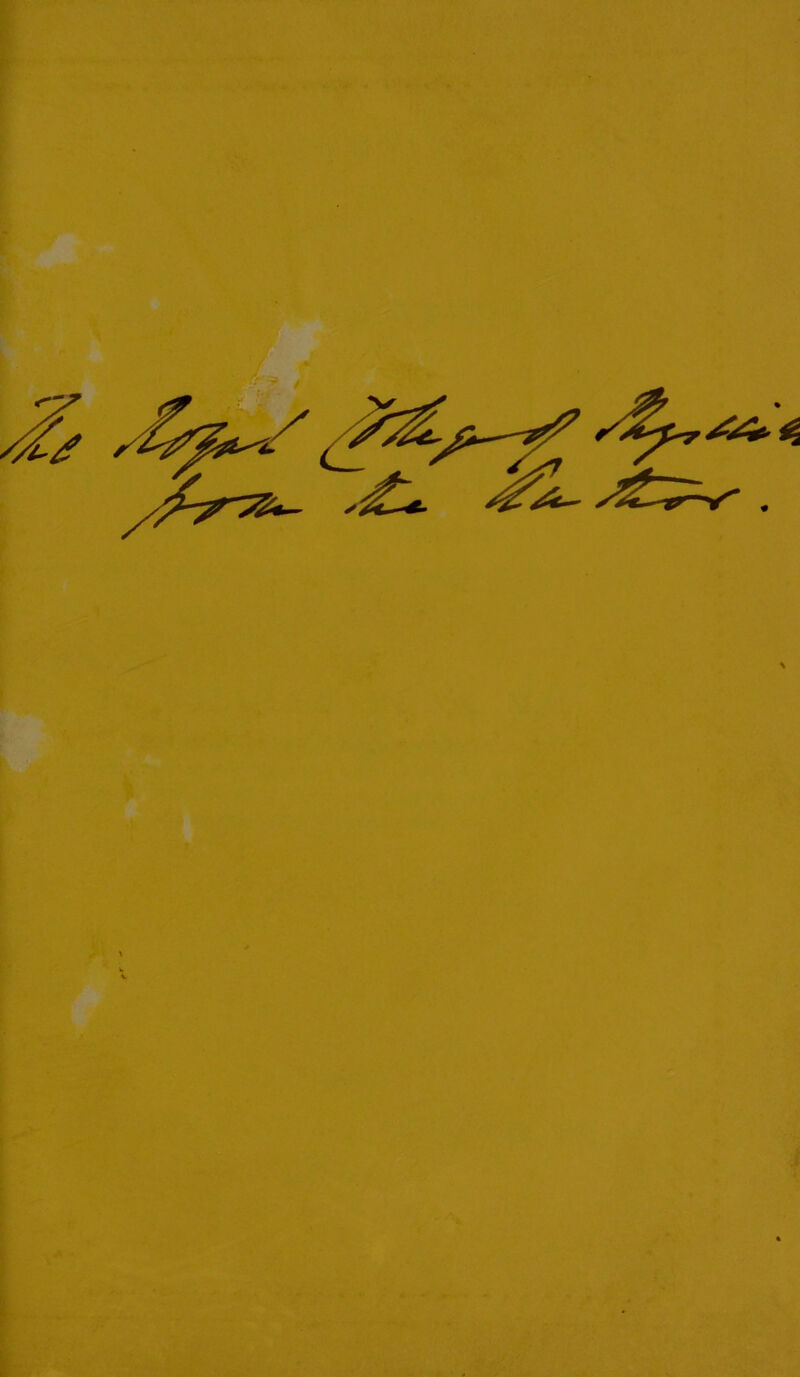 The Royal College of Physicia
from the Author.